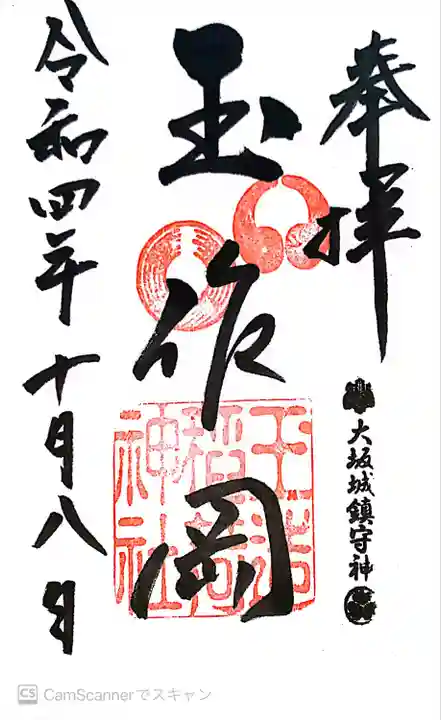 奉拝
大坂城鎮守神
玉作岡
玉造稲荷神社
令和四年十月八日
CS CamScannerでスキャン